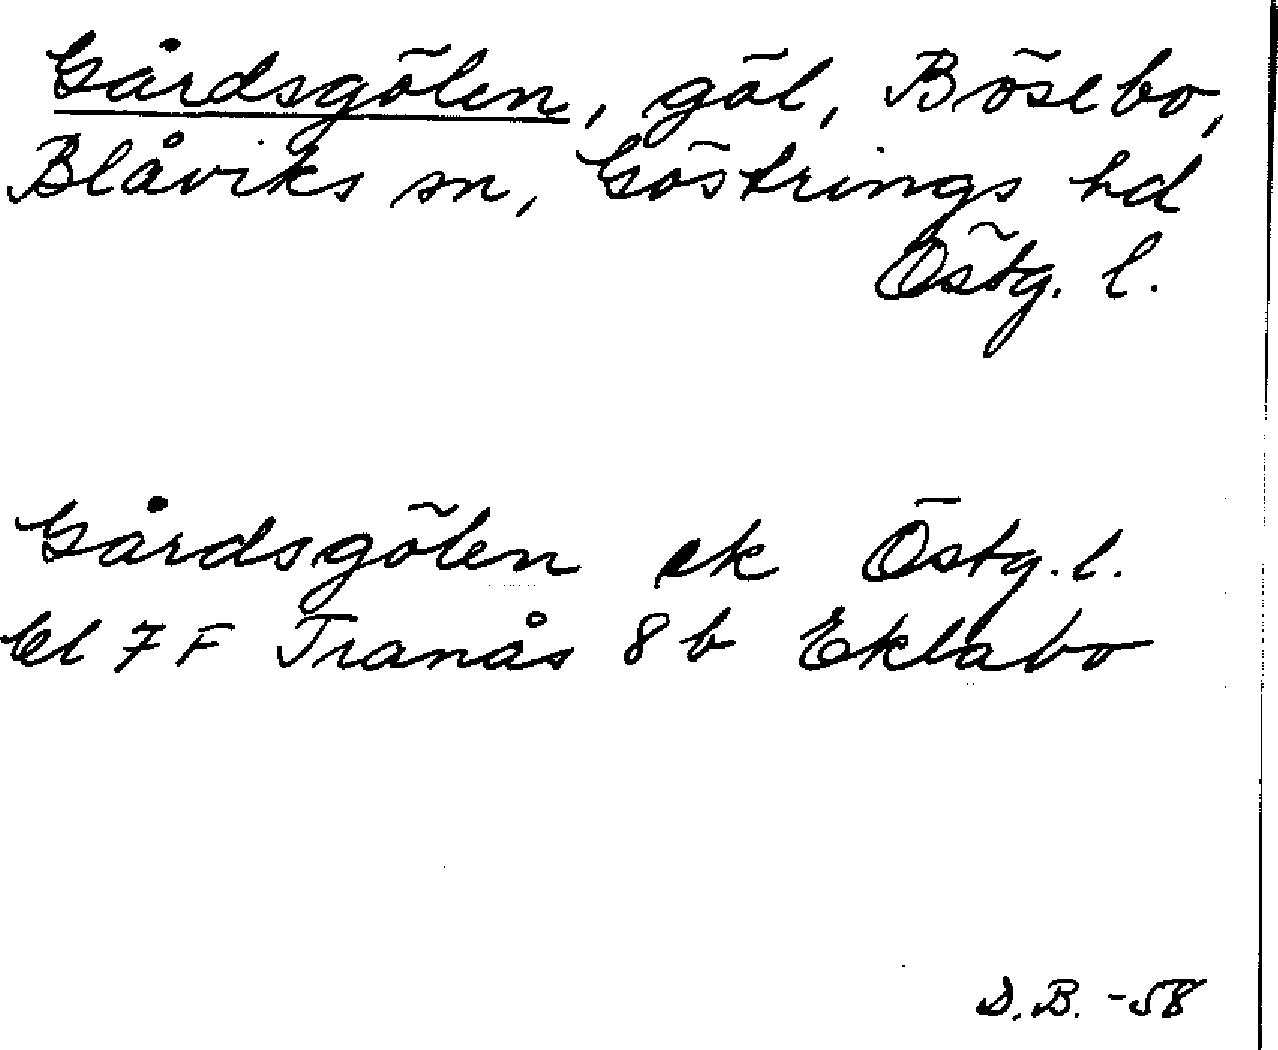 Gårdsgölen, göl, Bösebo,
Blåviks sn, Göstrings hd
Östg. l.
Gårdsgölen ek Östg. l.
bl 7 F Tranås 8 b Eklabo
D.B. -58